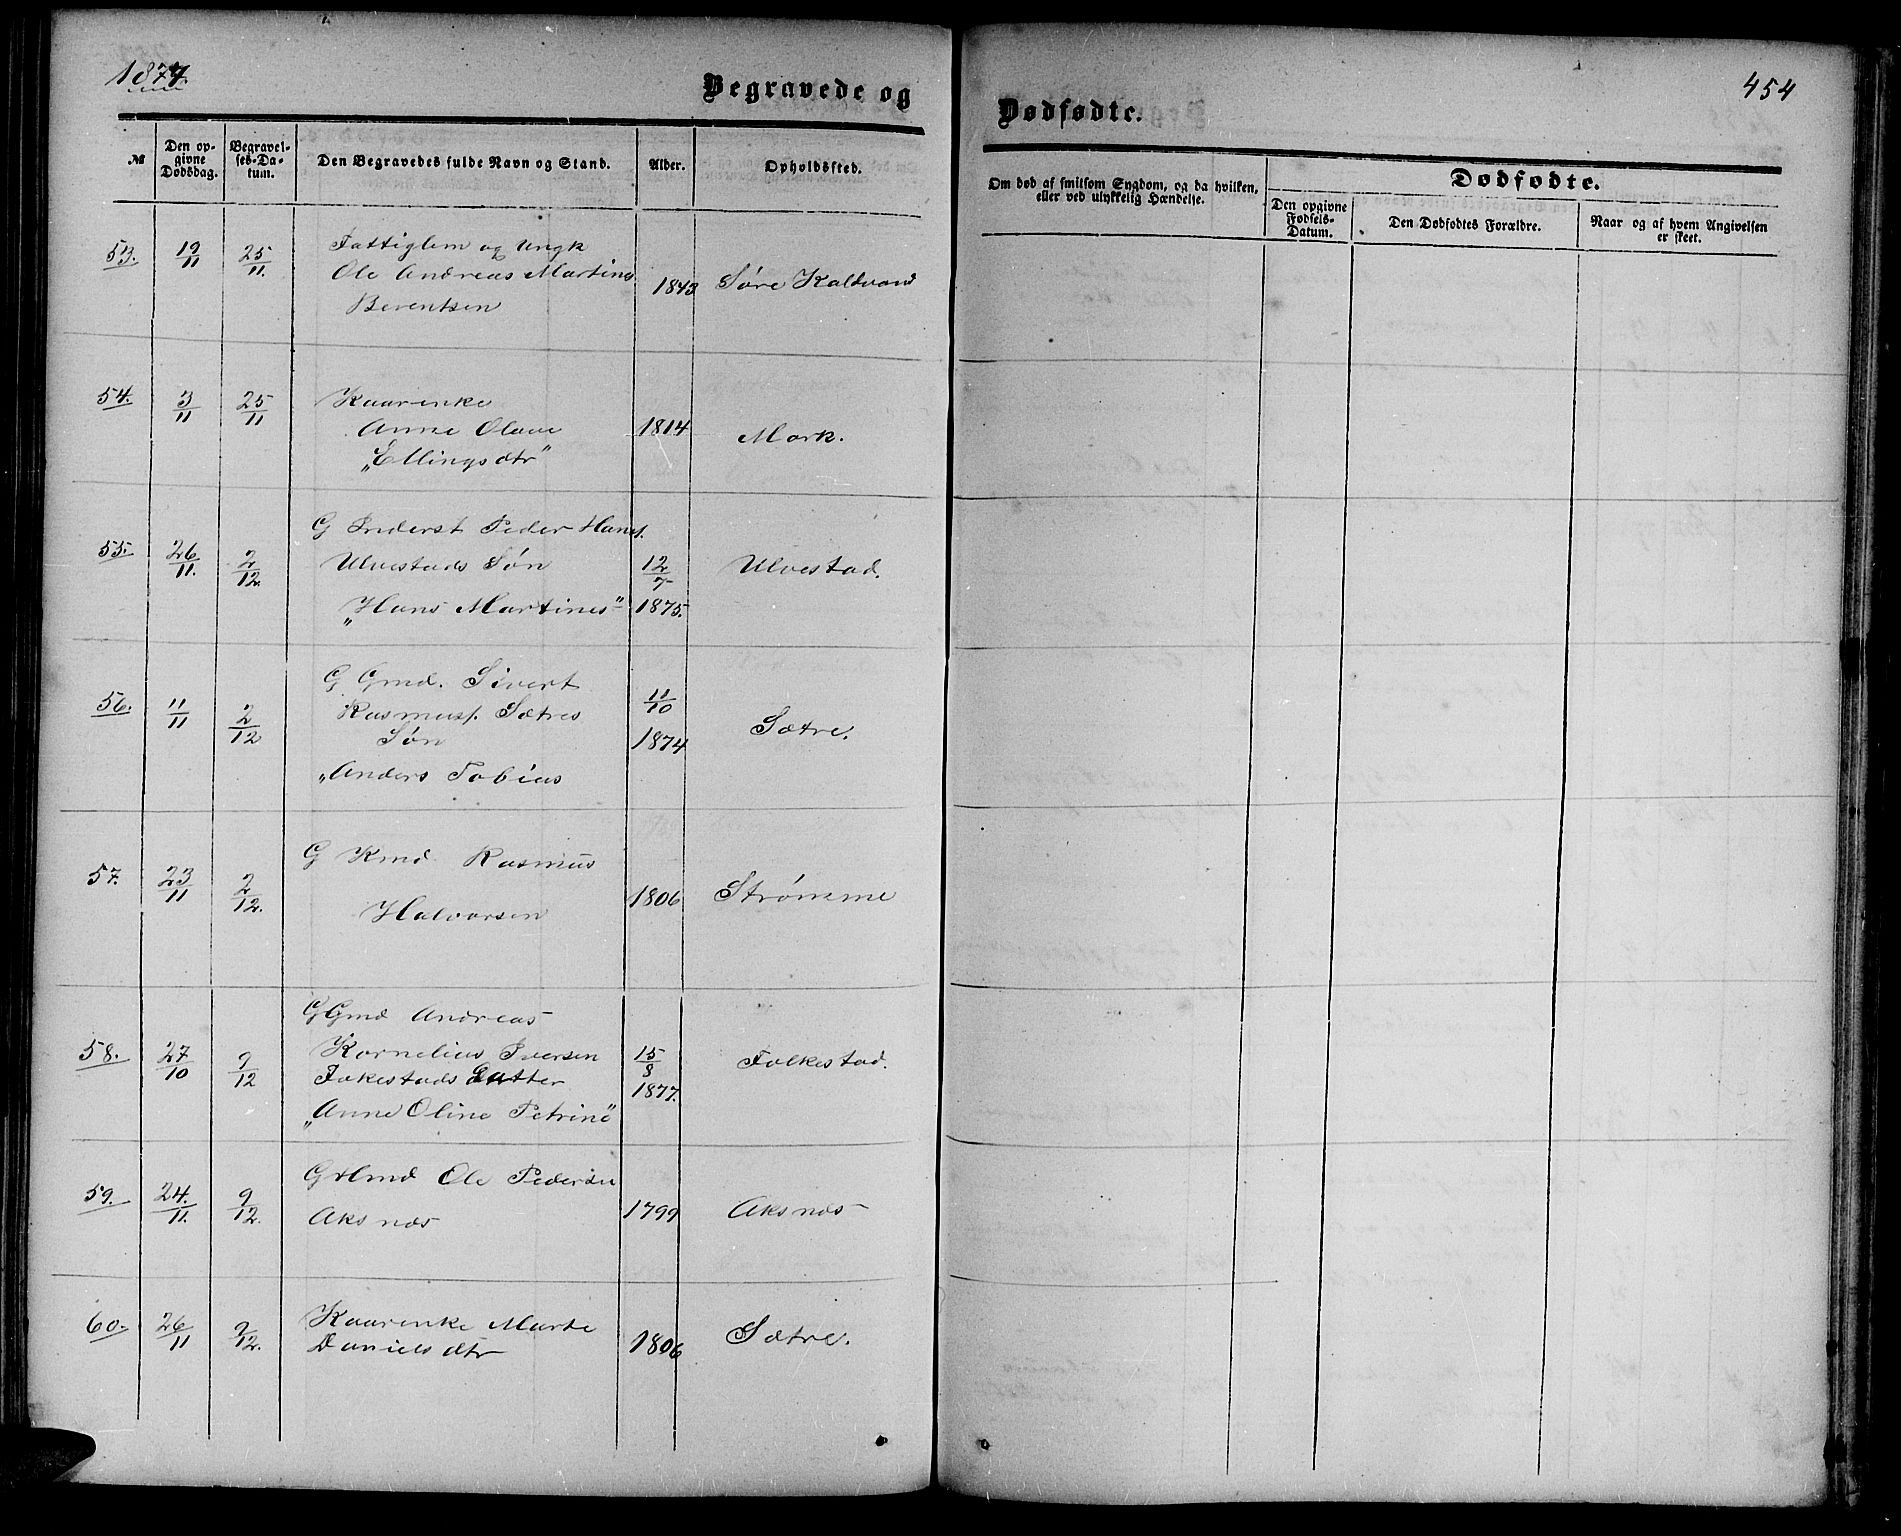 1877.
Begravede og
Dødfødte.
454
№
Den opgivne Dødsdag.
Begravelses-Datum.
Den Begravedes fulde Navn og Stand.
Alder.
Opholdssted.
Om død af smitsom Sygdom, og da hvilken, eller ved ulykkelig Hændelse.
Dødfødte.
Den opgivne Fødsels-Datum.
Den Dødfødtes Forældre.
Naar og af hvem Angivelsen er skeet.
53. 12/11 25/11. Fattiglem og Ungk
Ole Andreas Martines 1843 Søre Kaldvand
Berentsen
54. 3/11 25/11 Kaarenke
Anne Olave 1814 Mork.
"Ellingsdtr"
55. 26/11. 2/12. G Inderst Peder Hans.
Ulvestads Søn 12/7 Ulvestad.
"Hans Martines" 1875.
56. 11/11 2/12 G. Gmd. Sivert 11/10
Rasmuss. Sætres
Søn 1874 Sætre.
"Anders Tobias
57. 23/11 2/12. G Kmd Rasmus
Halvorsen 1806 Strømme
58. 27/10 9/12 G Gmd Andreas
Kornelius Iversen 15/8 Folkestad.
Folkestads Datter 1877.
"Anne Oline Petrine"
59. 24./11. 9/12. Ole Pedersen
Aksnæs 1799 Aksnæs
60. 26/11 9/12. Kaarenke Marte
Danielsdtr 1806 Sætre.